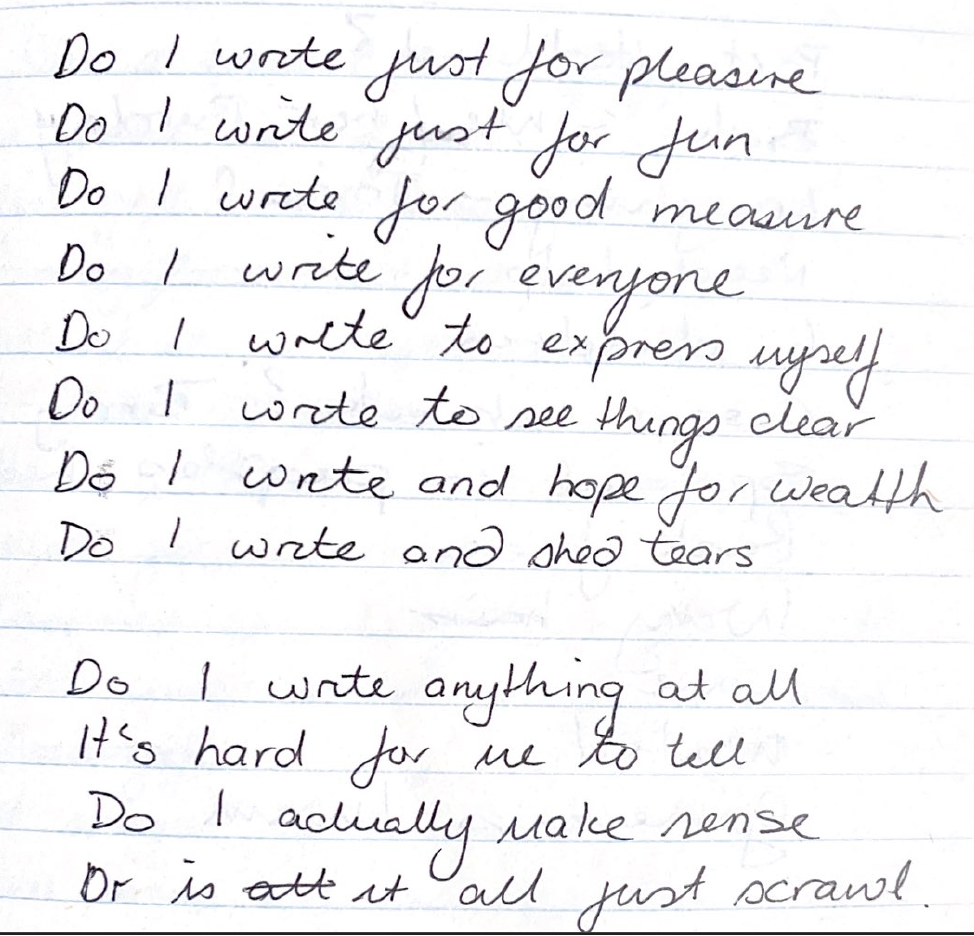 Do I write just for pleasure
Do I write just for fun
Do I write for good measure
Do I write for everyone
Do I write to express myself
Do I write to see things clear
Do I write and hope for wealth
Do I write and shed tears

Do I write anything at all
It's hard for me to tell
Do I actually make sense
Or is all it all just scrawl.